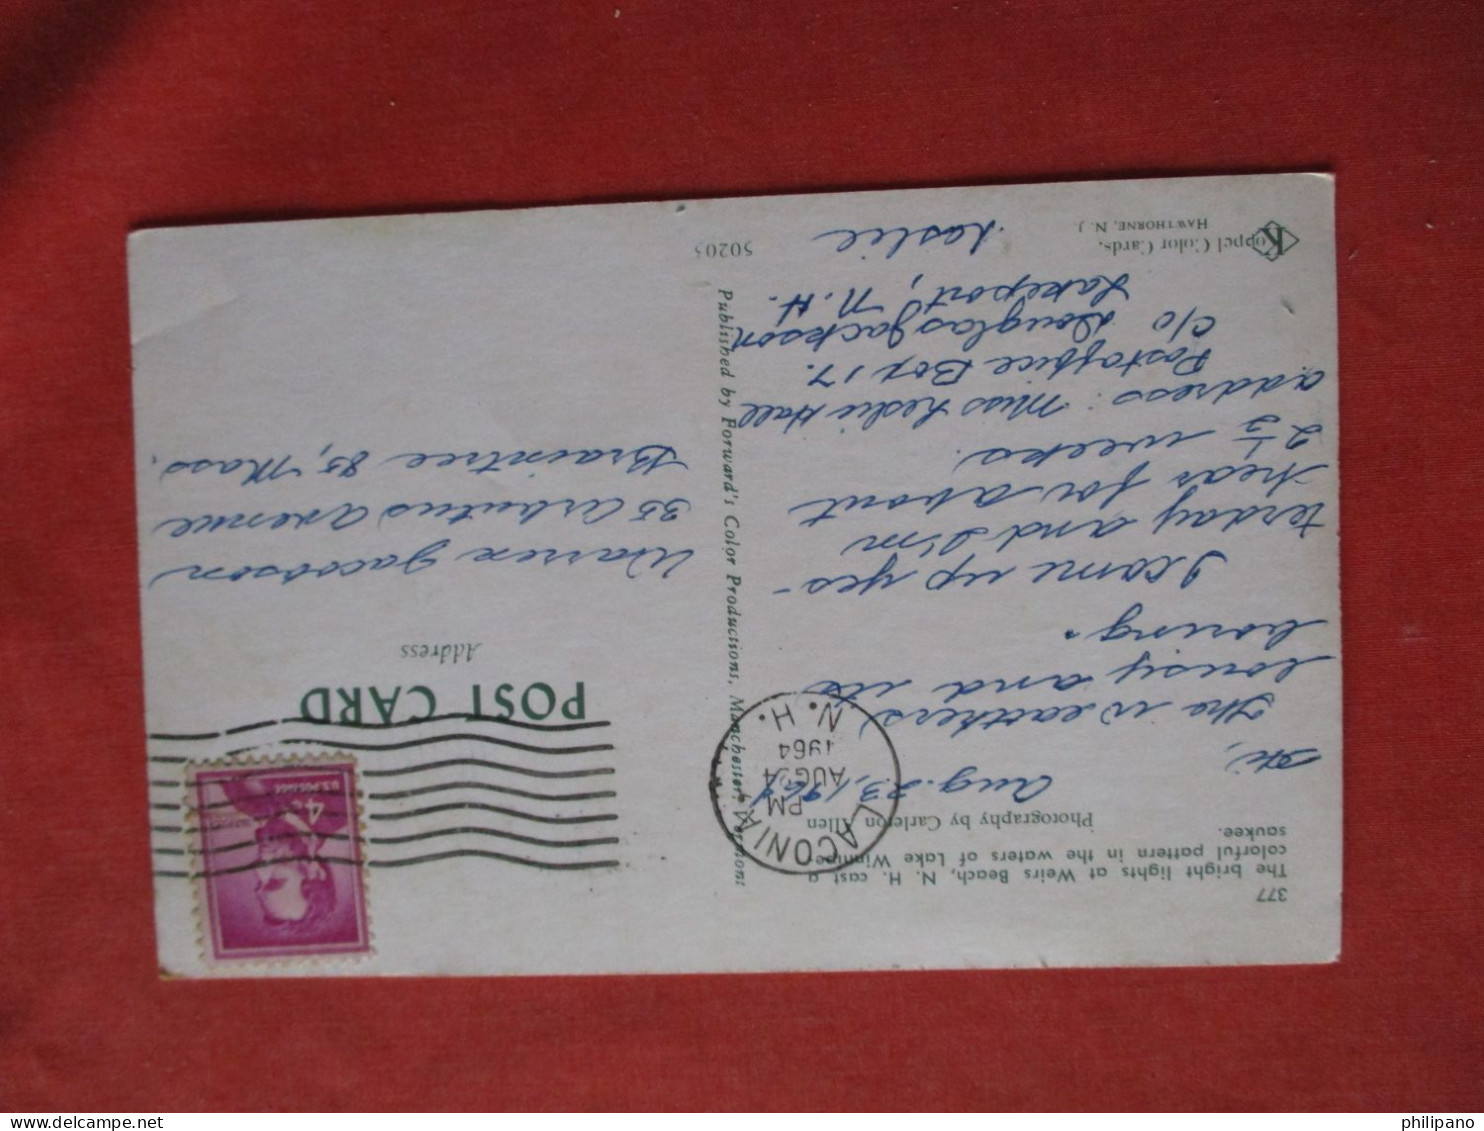 377
The bright lights at Weirs Beach, N. H. cast a
colorful pattern in the waters of Lake Winnipe-
saukee.
Photography by Carleton Allen
Aug. 23, 1964
Hi,
The weather's
lousy and its
boring.
I come up yes-
terday and I'm
hear for about
2 1/2 weeks.
address: Miss Leslie Hall
Postoffice Box 17.
c/o Douglas Jackson
Lakeport, N.H.
Leslie
Koppel Color Cards,
HAWTHORNE, N. J.
50205
Published by Forward's Color Productions, Manchester, Vermont
LACONIA
PM
AUG 24
1964
N. H.
POST CARD
Address
Warren Jacobson
35 Arbutus Avenue
Braintree 85, Mass.
4¢
U.S. POSTAGE
philipano
www.delcampe.net